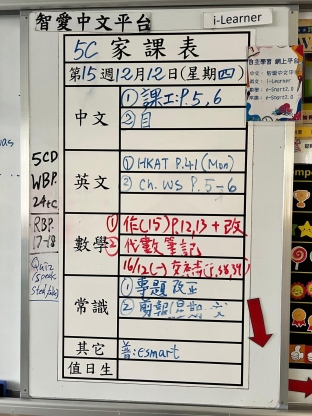 智愛中文平台
i-Learner
5C 家課表
第15週12月12日(星期四)
中文
①課工:P.5,6
②自
英文
①HKAT P.41 (Mon)
② Ch. WS P.5-6
數學
①作(15)P.12,13 + 改
②代數筆記
16/12(一)
常識
①專題改正
②剪報(星期一交
其它
普:esmart
值日生
5CD
WBP.
24+c
RBP.
17-18
Quiz
自主學習 網上平台
中文: 智愛中文平台
英文: i-Learner
數學: e-Smart2.0
常識: e-Smart2.0